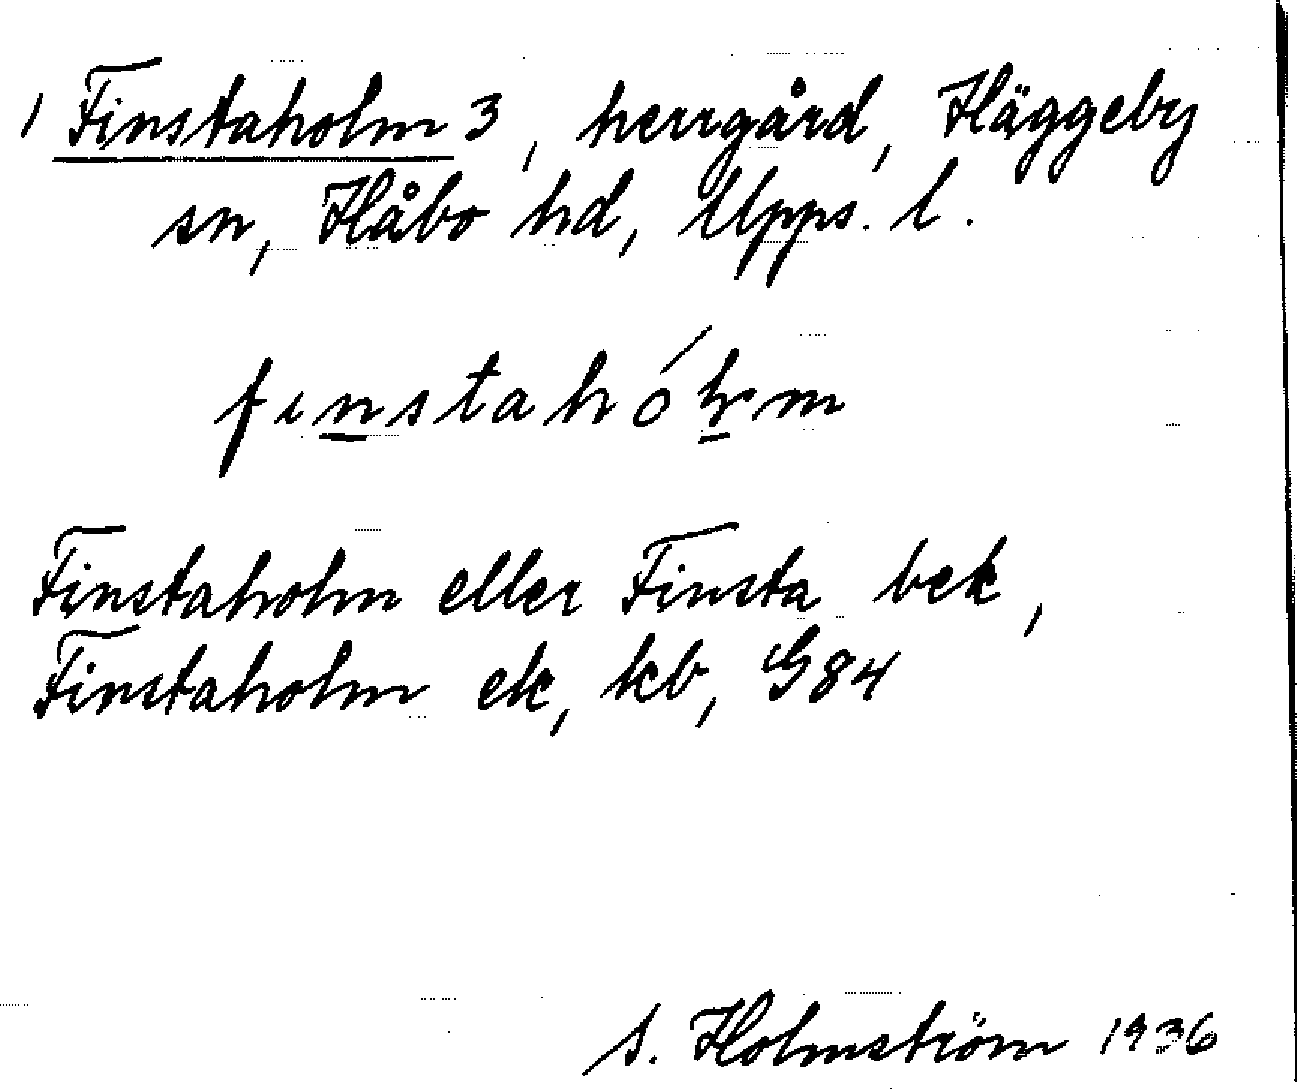 1 Finstaholm 3, herrgård, Häggeby
sn, Håbo hd, Upps. l.
finstahólm
Finstaholm eller Finsta bek,
Finstaholm ek, kb, G84
S. Holmström 1936